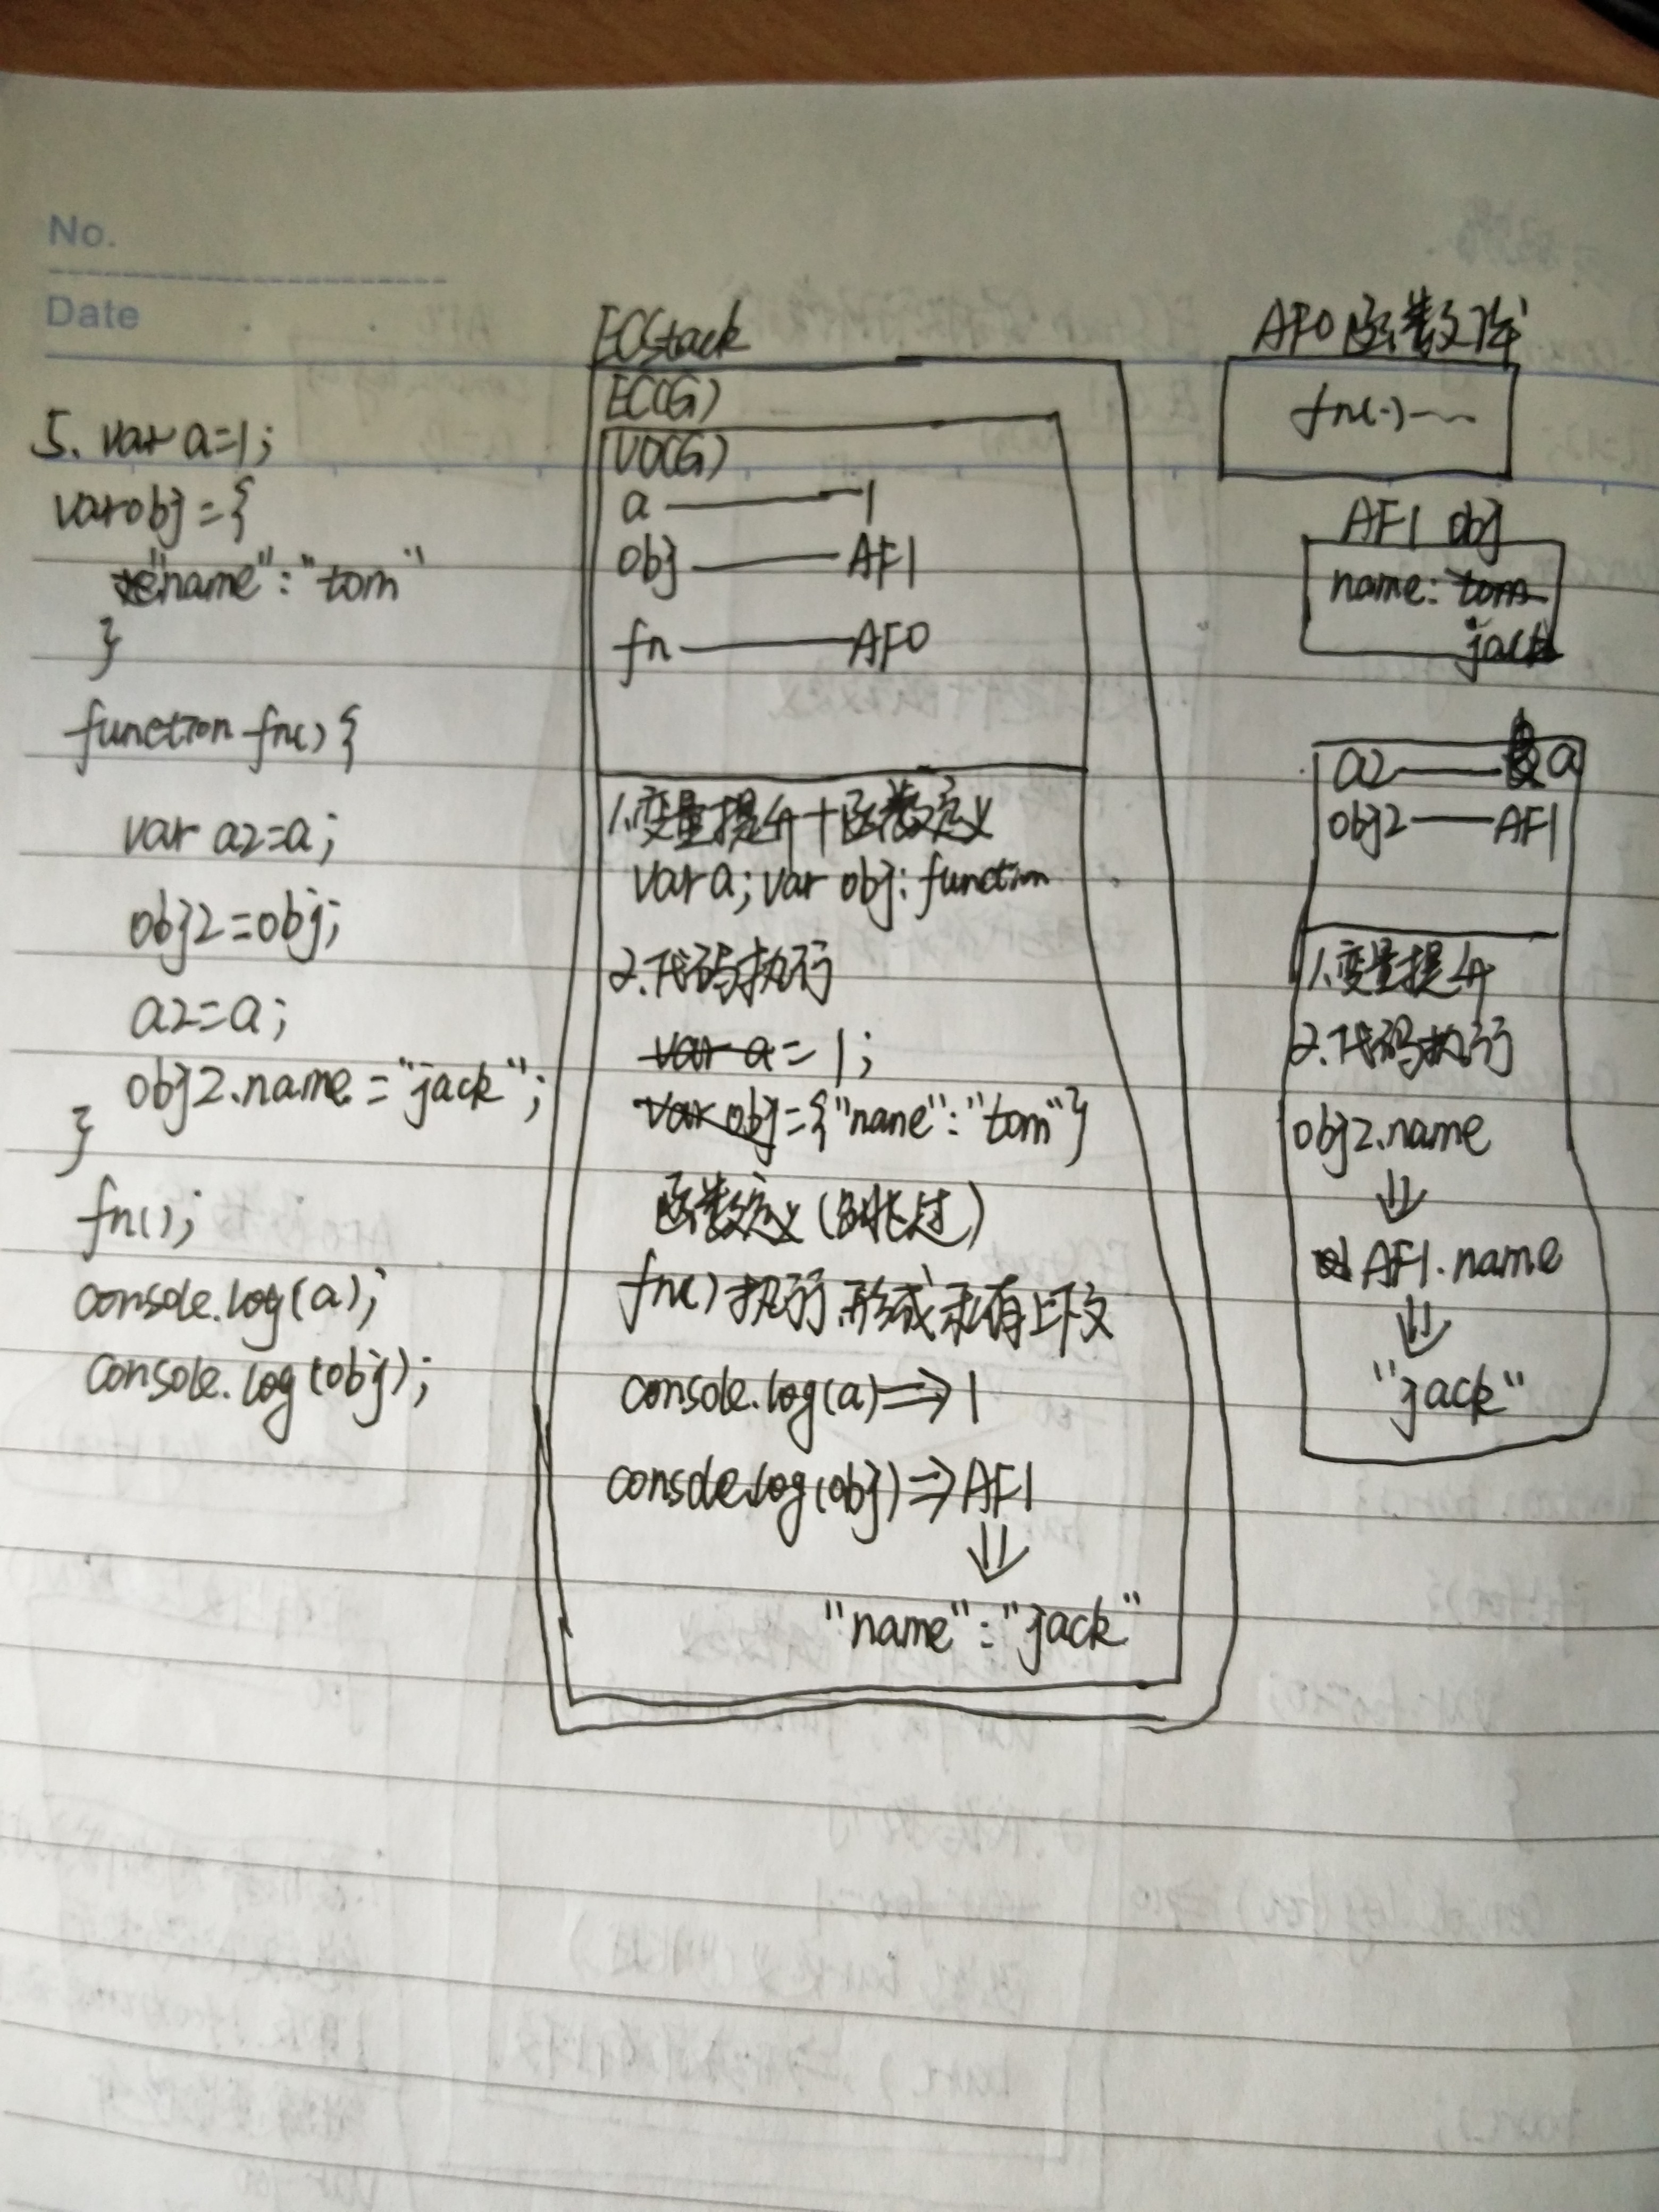 No.
Date
5. var a=1;
var obj={
"name":"tom"
}
function fn(){
var a2=a;
obj2=obj;
a2=a;
obj2.name="jack";
}
fn();
console.log(a);
console.log(obj);
ECStack
EC(G)
VO(G)
a —— 1
obj —— AF1
fn —— AF0
1.变量提升+函数定义
var a; var obj; function
2.代码执行
var a=1;
var obj={"name":"tom"}
函数定义(跳过)
fn()执行 形成私有上下文
console.log(a)⇒1
console.log(obj)⇒AF1
⇓
"name":"jack"
AF0 函数体
fn(·)—
AF1 obj
name: tom
jack
a2 —— a
obj2 —— AF1
1.变量提升
2.代码执行
obj2.name
⇓
AF1.name
⇓
"jack"